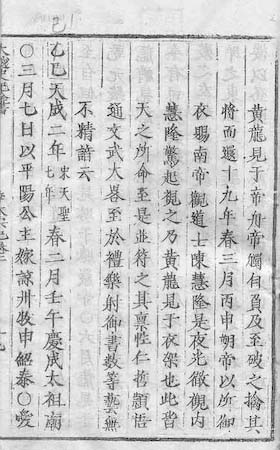 黃龍見于帝舟帝獨自負及至破之擒其
將而還十九年春三月丙申朔帝以所御
衣賜南帝觀道士陳慧隆是夜光徹觀内
慧隆驚起視之乃黃龍見于衣架也此皆
天之所命至是並符之其稟性仁哲頴悟
通文武大畧至於禮樂射御書數等藝無
不精諳云
己
乙巳天成二年宋天聖七年春二月壬午慶成太祖廟
〇三月七日以平陽公主嫁諒州牧申紹泰〇愛